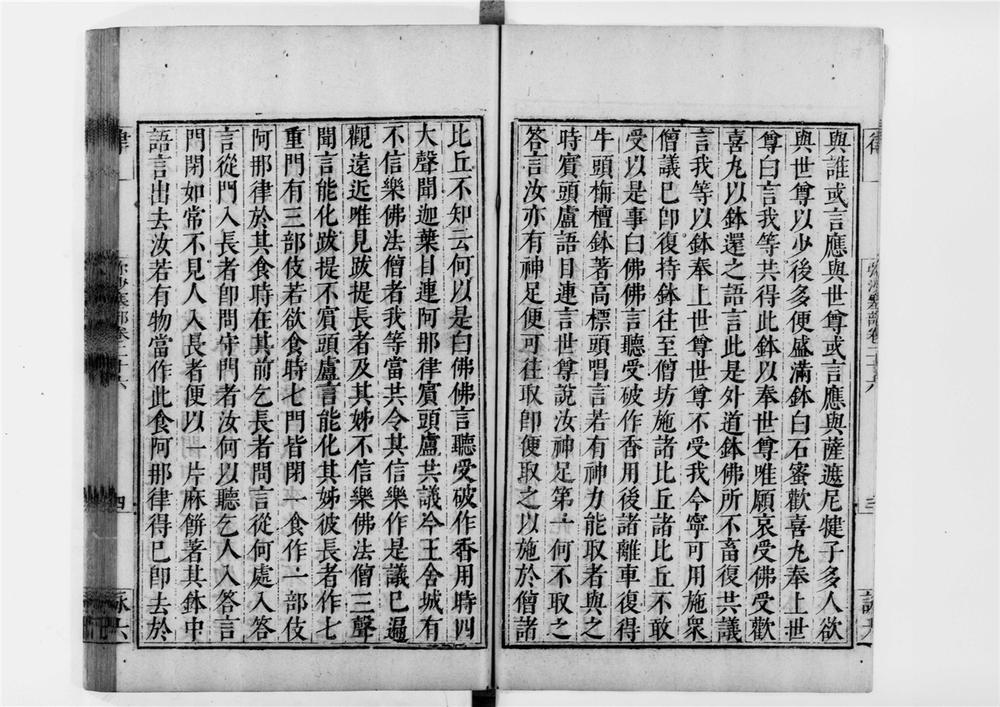 與誰或言應與世尊或言應與薩遮尼犍子多人欲
與世尊以少後多便盛滿鉢白石蜜歡喜丸奉上世
尊白言我等共得此鉢以奉世尊唯願哀受佛受歡
喜丸以鉢還之語言此是外道鉢佛所不畜復共議
言我等以鉢奉上世尊世尊不受我今寧可用施衆
僧議已卽復持鉢往至僧坊施諸比丘諸比丘不敢
受以是事白佛佛言聽受破作香用後諸離車復得
牛頭栴檀鉢著高標頭唱言若有神力能取者與之
時賓頭盧語目連言世尊說汝神足第一何不取之
答言汝亦有神足便可往取卽便取之以施於僧諸
比丘不知云何以是白佛佛言聽受破作香用時四
大聲聞迦葉目連阿那律賓頭盧共議今王舍城有
不信樂佛法僧者我等當共令其信樂作是議已遍
觀遠近唯見跋提長者及其姊不信樂佛法僧三聲
聞言能化跋提不賓頭盧言能化其姊彼長者作七
重門有三部伎若欲食時七門皆閉一食作一部伎
阿那律於其食時在其前乞長者問言從何處入答
言從門入長者卽問守門者汝何以聽乞人入答言
門閉如常不見人入長者便以一片麻餠著其鉢中
語言出去汝若有物當作此食阿那律得已卽去於
律
四